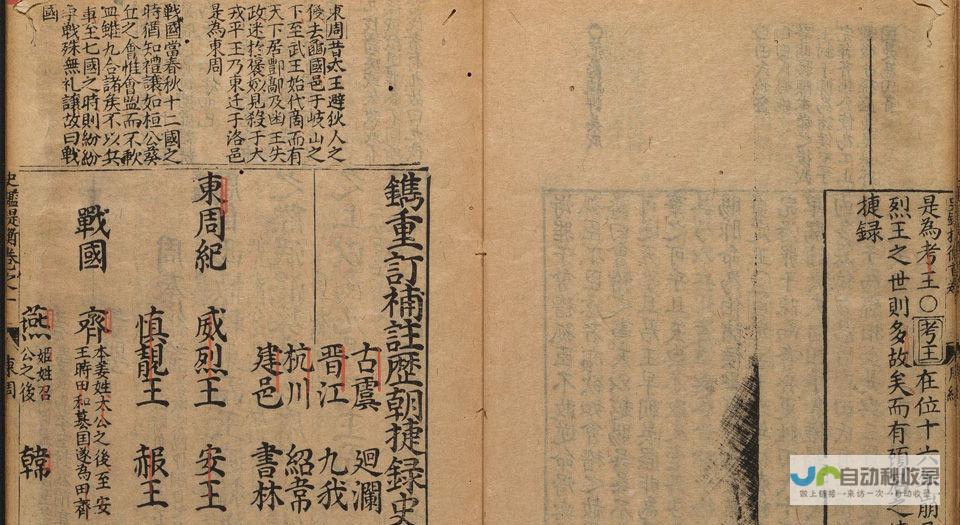 是為考王○考王在位十六
烈王之世則多故矣而有
捷録
東周昔太王避狄人之
侵去豳國邑于岐山之
下至武王始代商而有
天下居酆鄗及幽王失
政迷於褒姒見殺于犬
戎平王乃東迁于洛邑
是為東周
戰國當春秋十二國之
時猶知禮讓如桓公葵
丘之會惟會盟而不歃
血雖九合諸矦不以兵
車至七國之時則紛紛
爭戰殊無礼讓故曰戰
國
鐫重訂補註歷朝捷録史
古虞 迴瀾
晋江 九我
杭川 紹常
建邑 書林
東周紀 威烈王 安王
慎靚王 赧王
戰國 齊 本姜姓太公之後至安
王時田和篡国遂為田齊
燕 姬姓召
公之後 韓
史鑑提衡卷之一 東周
自动秒收录
做上链接→来访一次→自动收录